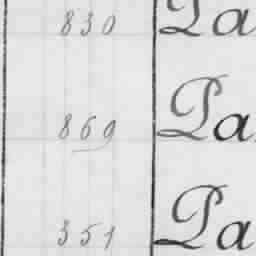 830 Pa
869 Pa
351 Pa